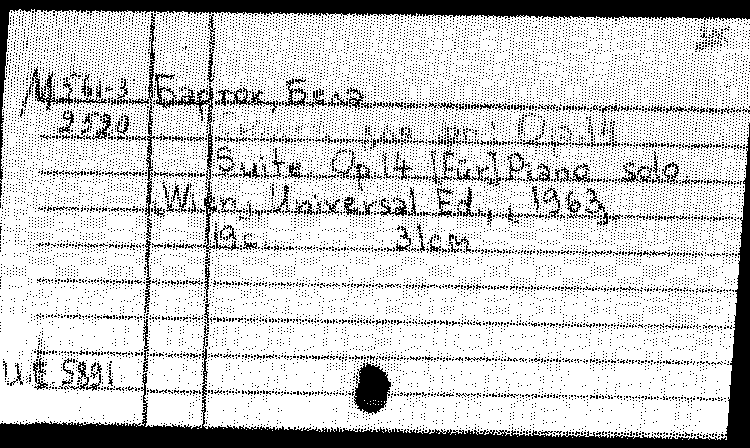 М 561-3 Барток, Бела
2520 Op. 14
Suite Op. 14 [Für] Piano solo
[Wien], Universal Ed., [1963].
19с 31см
U.E 5891